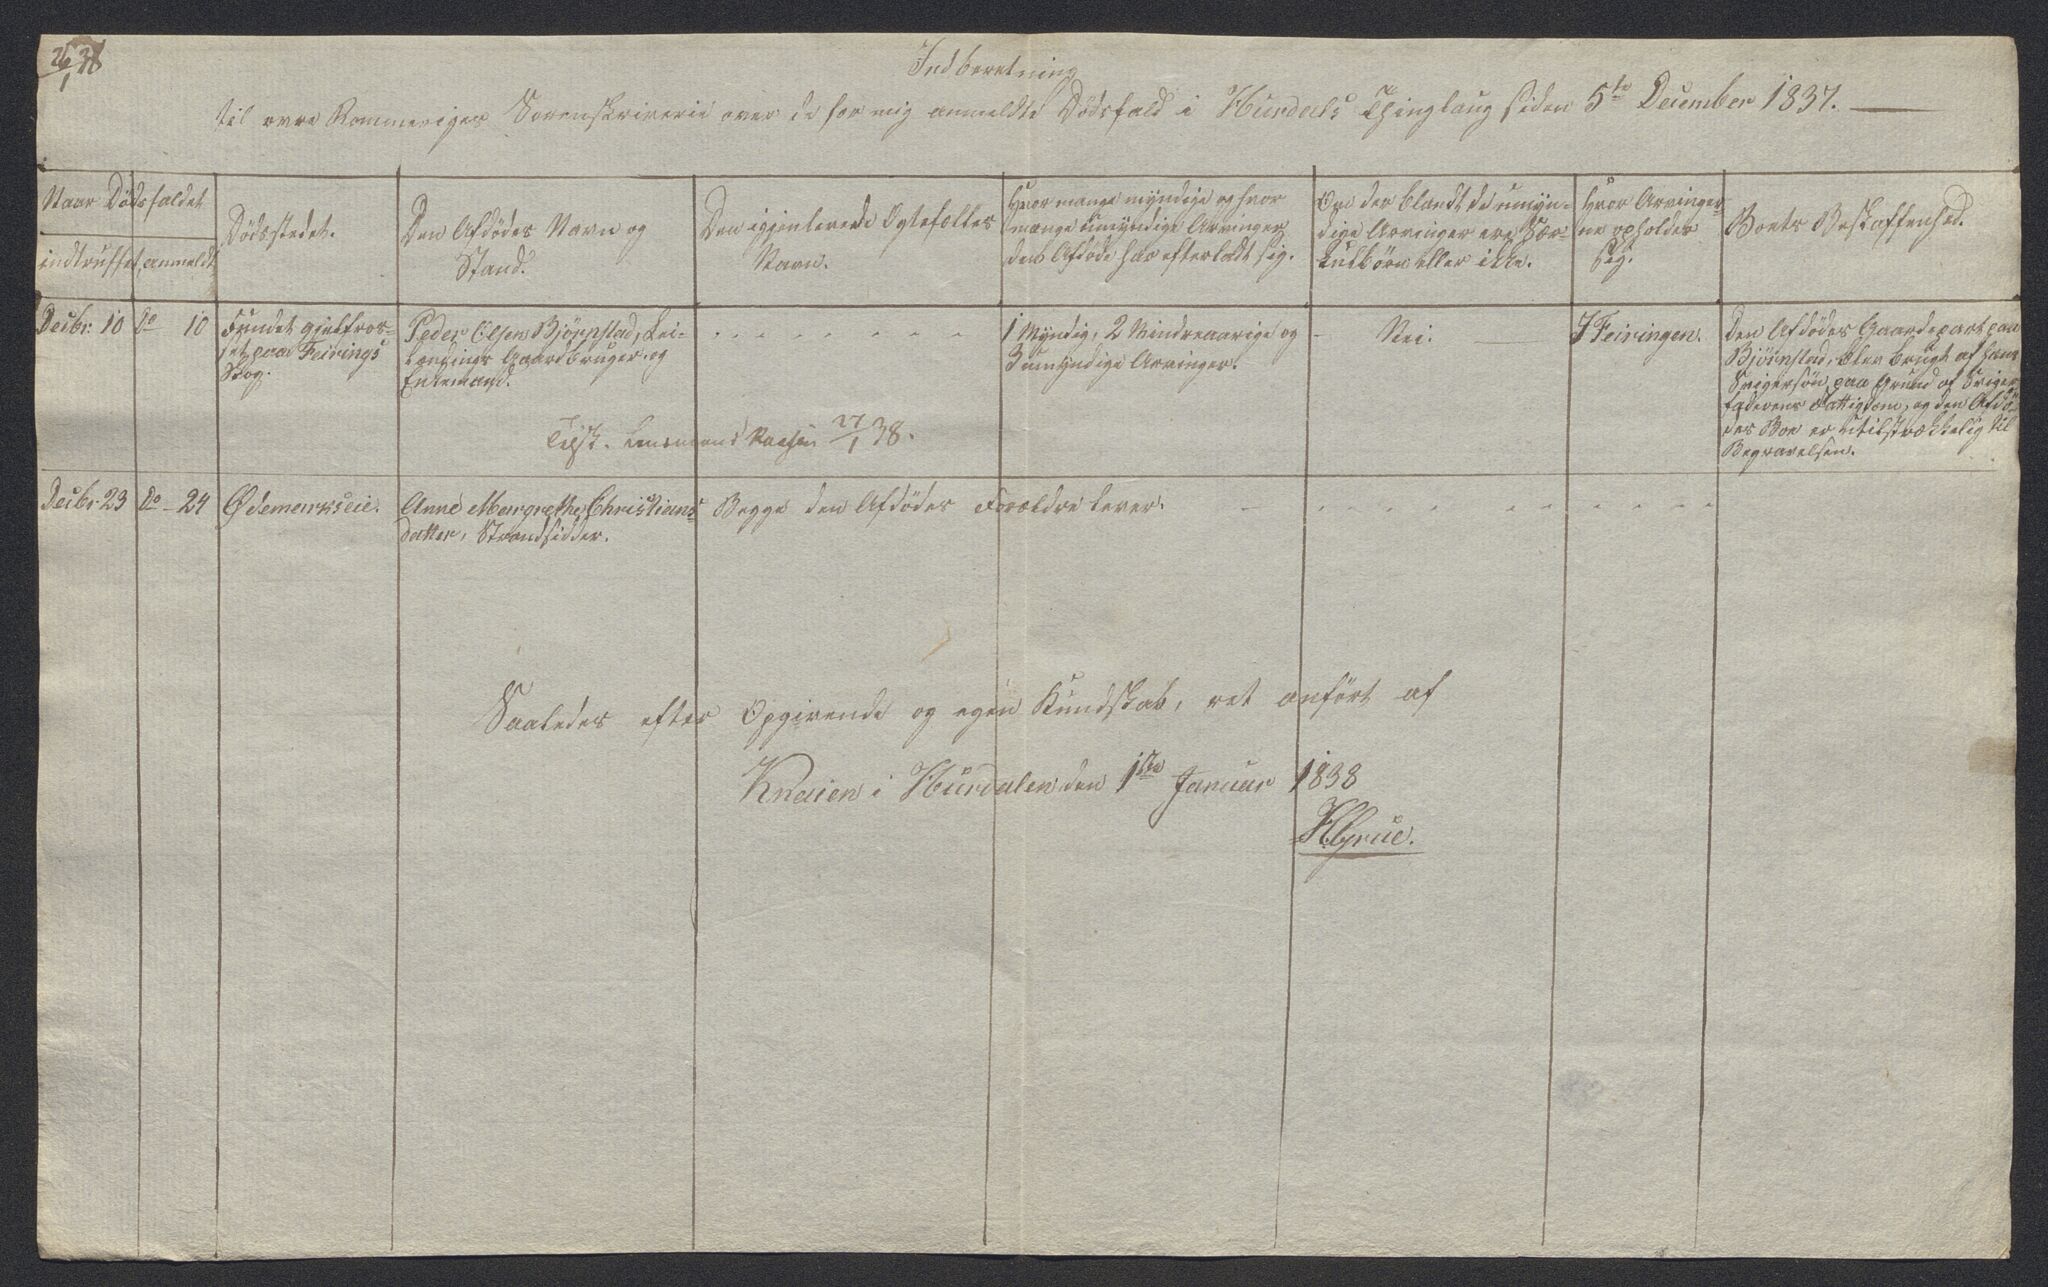 26/1 38
Indberetning
til øvre Rommeriges Sorenskriverie over de for mig anmeldte Dödsfald i Hurdals Thinglaug siden 5te December 1837.
Naar Dödsfaldet
indtruffet
anmeldt
Dödsstedet.
Den Afdödes Navn og
Stand.
Den igjenlevende Ægtefælles
Navn.
Hvor mange myndige og hvor
mange umyndige Arvinger
den Afdöde har efterladt sig.
Om der blandt de umyn-
dige Arvinger ere Sær-
kulbörn eller ikke.
Hvor Arvinger-
ne opholder
sig.
Boets Beskaffenhed.
Decbr. 10
Do 10
Fundet ihjelfros-
set paa Feirings
Skog.
Peder Olsen Björnstad, Lei-
lændings Gaardbruger og
Enkemand.
1 Myndig, 2 Mindreaarige og
3 umyndige Arvinger.
Nei.
I Feiringen.
Den Afdödes Gaardepart paa
Björnstad, blev brugt af hans
Svigersön paa Grund af Sviger-
faderens Fattigdom, og den Afdö-
des Boe er utilstrækkelig til
Begravelsen.
Tilsk. Lensmand 27/1 38.
Decbr 23
Do 24
Ødemarkseie.
Anne Margrethe Christians-
datter, Strandsidder.
Begge den Afdödes Forældre lever.
Saaledes efter Opgivende og egen Kundskab, ret anfört af
Knaien i Hurdalen den 1ste Januar 1838
HGrue.